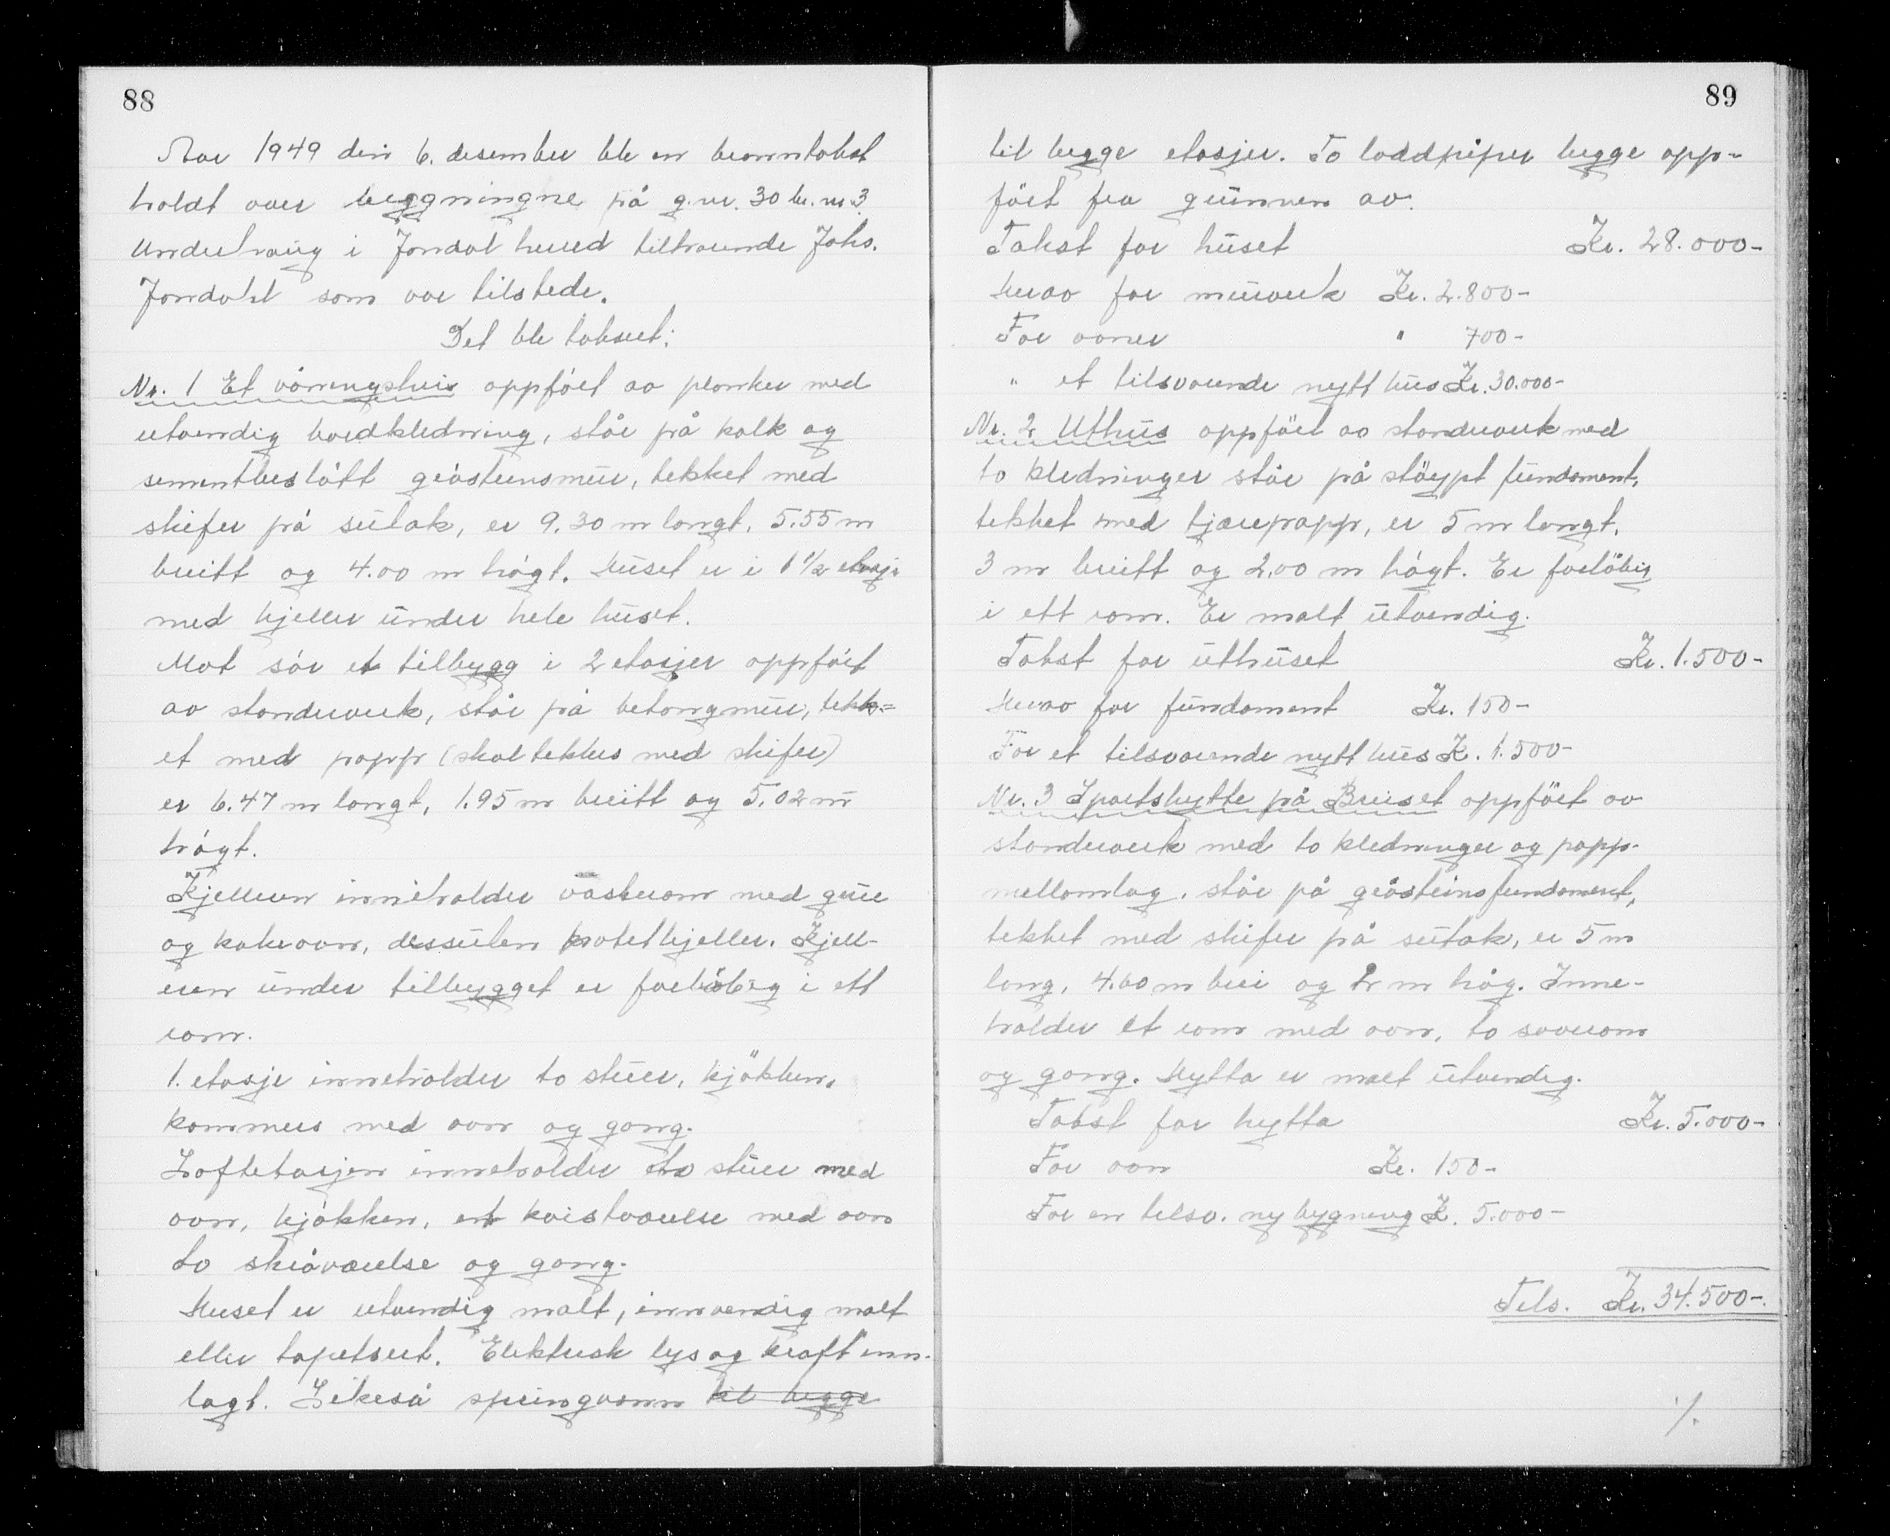 88
Aar 1949 den 6. desember ble en branntakst
holdt over byggningne på g.nr. 30 br. nr. 3
Underhaug i Jondal herred tilhørende Johs.
Jondahl som var tilstede.
Det ble taksert:
Nr. 1 Et våningshus oppført av planker med
utvendig bordkledning, står på kalk og
sementbeslått gråsteinsmur, tekket med
skifer på sutak, er 9.30 m langt, 5.55 m
breitt og 4.00 m høgt. Huset er i 1 1/2 etasje
med kjeller under hele huset.
Mot sør et tilbygg i 2 etasjer oppført
av standerverk, står på betongmur, tekk=
et med papp (skal tekkes med skifer)
er 6.47 m langt, 1.95 m breitt og 5.02 m
høgt.
Kjelleren inneholder vaskerom med grue
og kakeovn, dessuten potetkjeller. Kjell-
eren under tilbygget er foreløbig i ett
rom.
1. etasje inneholder to stuer, kjøkken,
kammers med ovn og gang.
Loftetasjen inneholder to stuer med
ovn, kjøkken, ett kvistværelse med ovn
to skråværelse og gang.
Huset er utvendig malt, innvendig malt
eller tapetsert. Elektrisk lys og kraft inn-
lagt. Likeså springvann til begge
89
til begge etasjer. To loddpiper begge opp-
ført fra grunnen av.
Takst for huset Kr. 28.000-
Herav for murverk Kr. 2.800-
For ovner " 700-
" et tilsvarende nytt hus Kr. 30.000-
Nr. 2 Uthus oppført av standerverk med
to kledninger står på støypt fundament,
tekket med tjærepapp, er 5 m langt,
3 m breitt og 2,00 m høgt. Er foreløbig
i ett rom. Er malt utvendig.
Takst for uthuset Kr. 1.500-
Herav for fundament Kr. 150-
For et tilsvarende nytt hus K. 1.500-
Nr. 3 Sportshytte på Breiset oppført av
standerverk med to kledninger og papp-
mellomlag, står på gråsteinsfundament,
tekket med skifer på sutak, er 5 m
lang, 4.60 m brei og m høg. Inne-
holder et rom med ovn, to soverom
og gang. Hytta er malt utvendig.
Takst for hytta Kr. 5.000-
For ovn Kr. 150-
For en tilsv. ny bygning K. 5.000-
Tils. Kr. 34.500-
./.